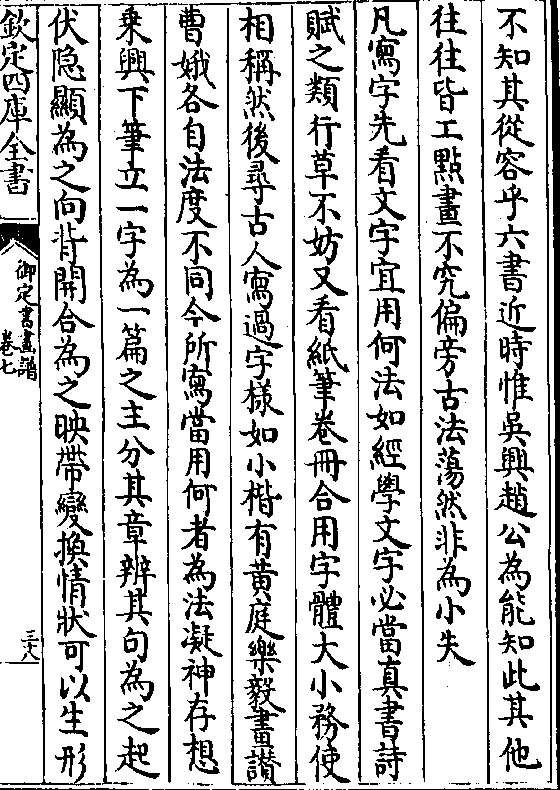 不知其從容乎六書近時惟吳興趙公為能知此其他
往往皆工點畫不究偏旁古法蕩然非為小失
凡寫字先看文字宜用何法如經學文字必當真書詩
賦之類行草不妨又看紙筆卷冊合用字體大小務使
相稱然後尋古人寫過字樣如小楷有黃庭樂毅畫讃
曹娥各自法度不同今所寫當用何者為法凝神存想
乘興下筆立一字為一篇之主分其章辨其句為之起
伏隐顯為之向背開合為之映帶變換情狀可以生形
欽定四庫全書
御定書畫譜
卷七
三八